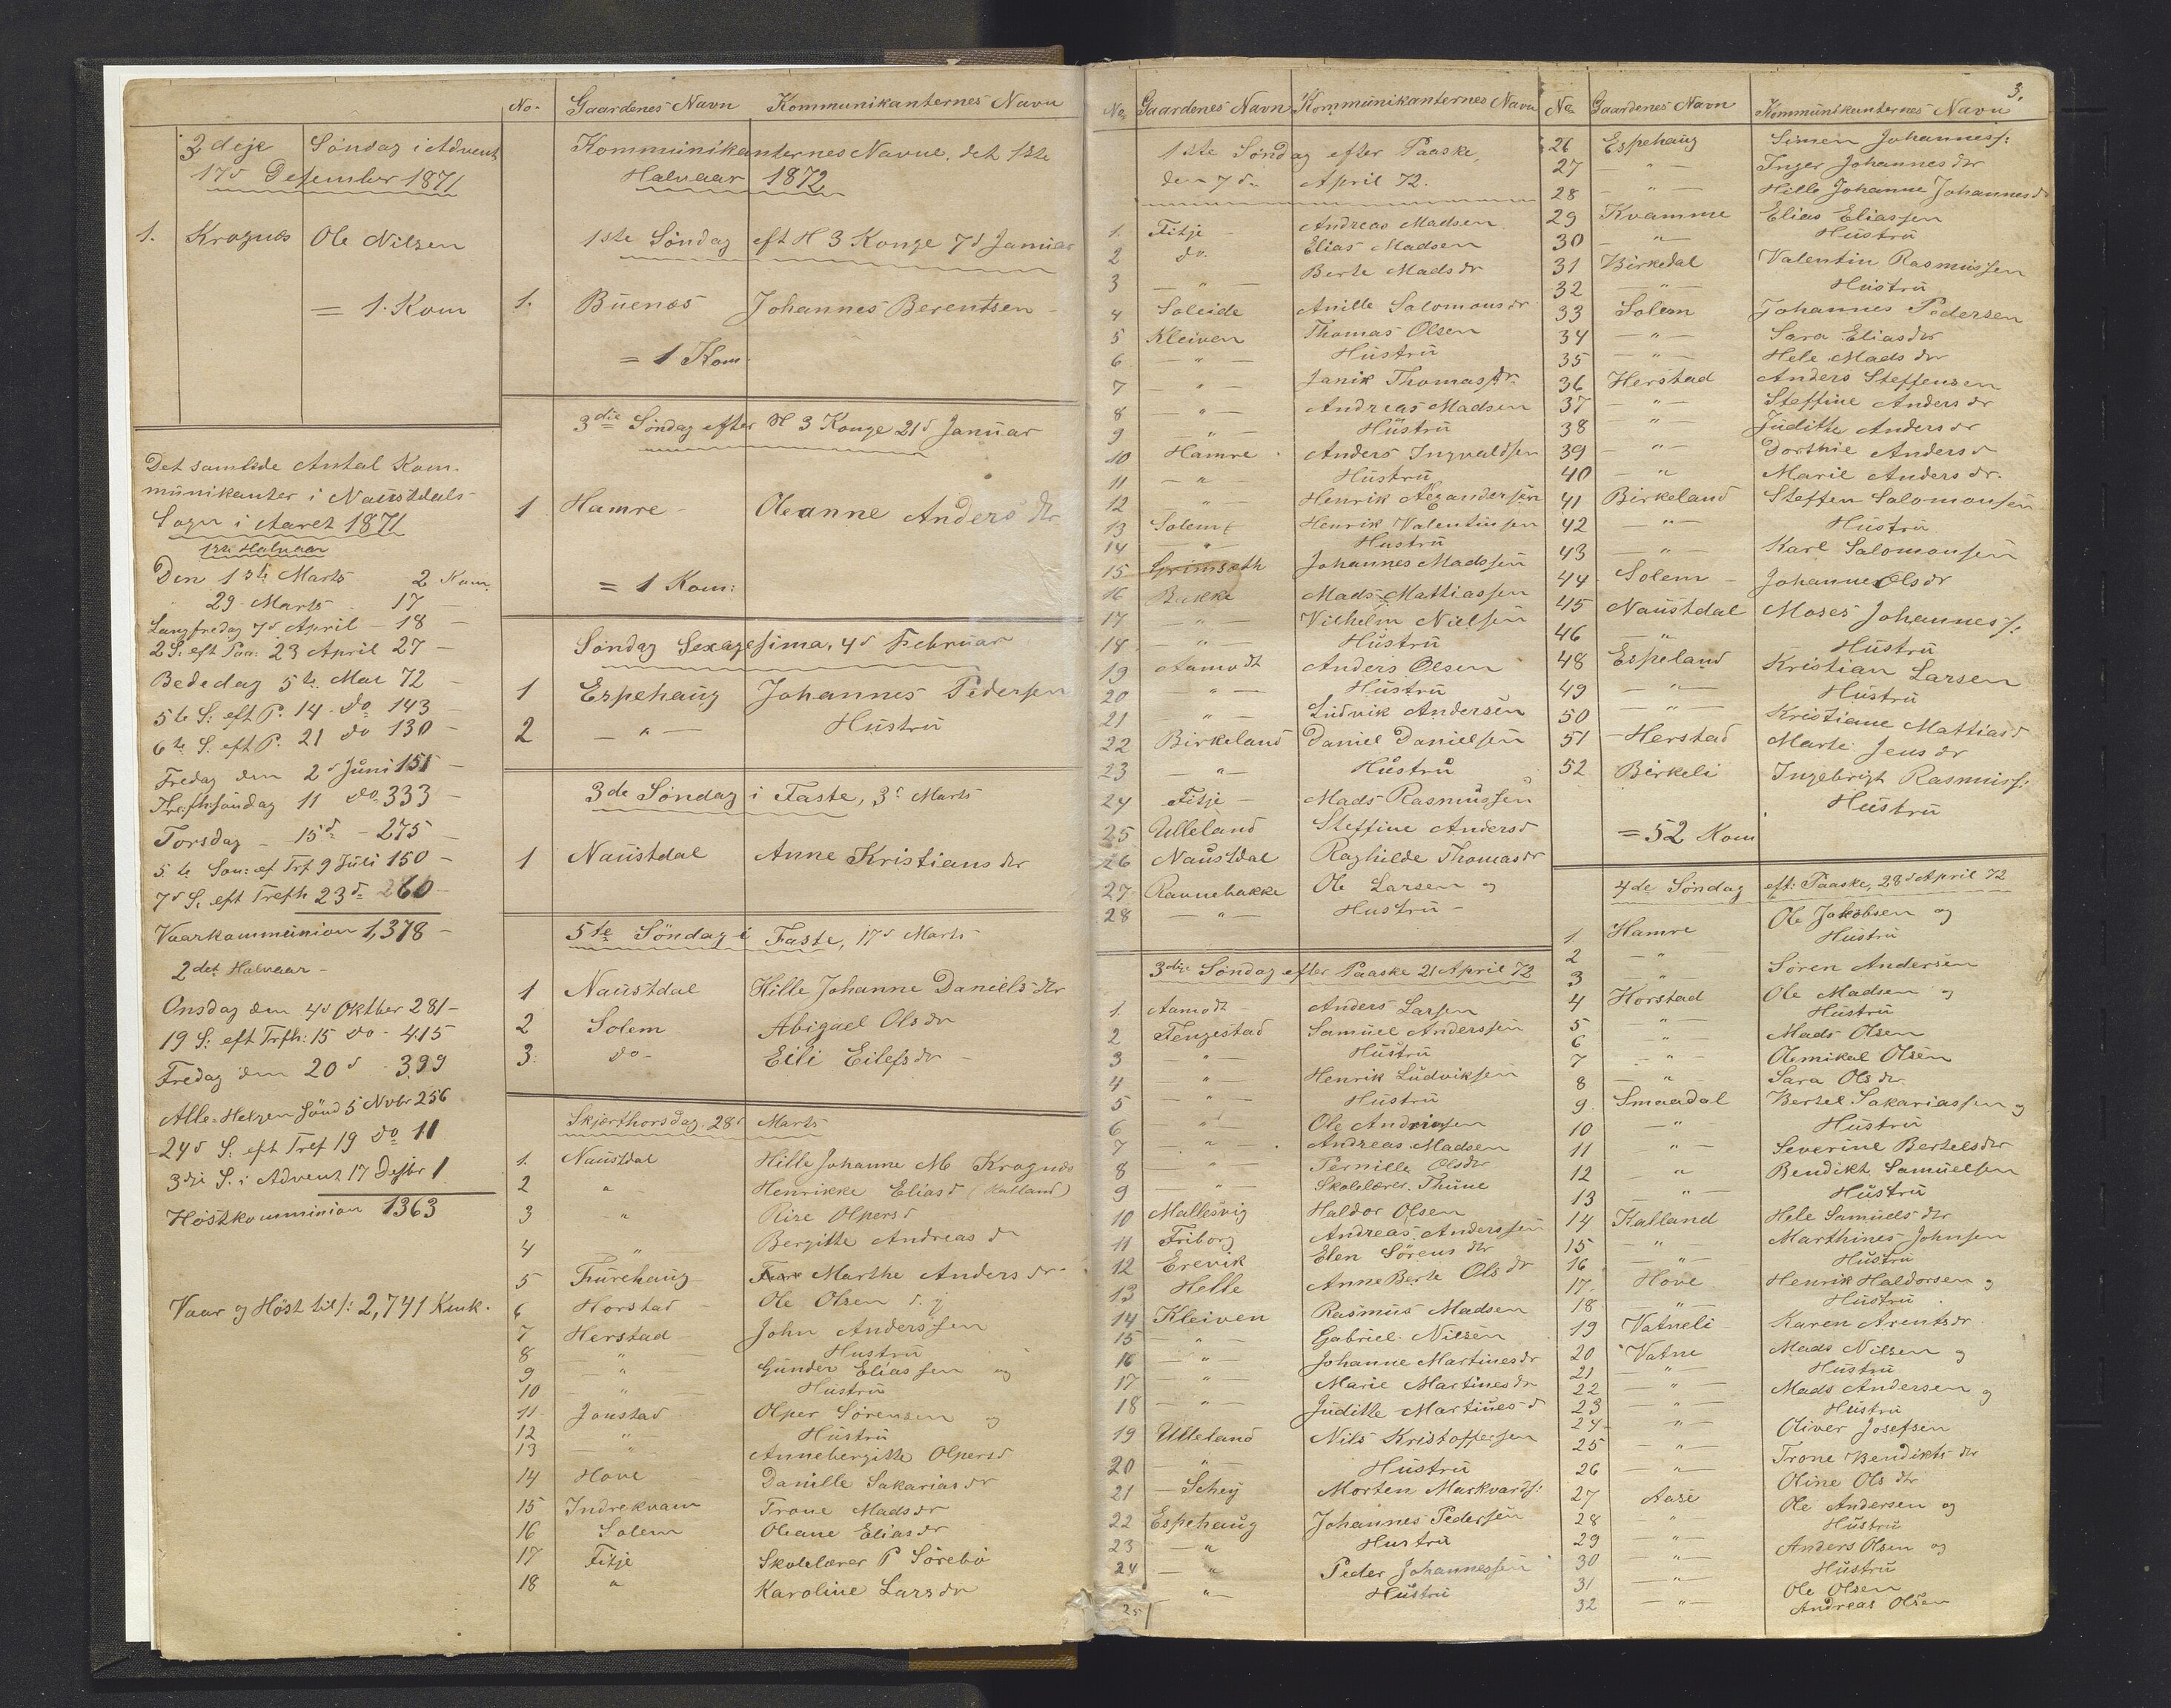 3die Söndag i Advent
17d Desember 1871
1. Kragnes Ole Nilsen
= 1. Kom
Det samlede Antal Kom-
munikanter i Naustdals
Sogn i Aaret 1871
1ste Halvaar
Den 1ste Marts 2 Kom.
29 Marts 17 —
Langfredag 7d April — 18 —
2 S. eft Paa: 23 April 27 —
Bededag 5te Mai 72 —
5te S. eft P. 14 do 143 —
6te S. eft P. 21 do 130 —
Fredag den 2d Juni 151 —
Trefh:søndag 11 do 333 —
Torsdag — 15d — 275 —
5te Son: ef Trf 9 Juli 150 —
7d S. eft Trefh 23d 260 —
Vaarkommunion 1,378 —
2det Halvaar —
Onsdag den 4d Oktber 281 —
19 S: eft Trfh: 15 do — 415
Fredag den 20d — 399
Alle-Helgen Sönd 5 Nvbr 256
— 24d S. eft Tref 19 do 11
3die S. i Advent 17 Desbr 1
Höstkommunion 1363
Vaar og Höst til s: 2,741 Kmk.
No. Gaardenes Navn Kommunikanternes Navn
Kommunikanternes Navne, det 1ste
Halvaar 1872
1ste Söndag eft H 3 Konge 7d Januar
1. Buenæs Johannes Berentsen —
= 1 Kom.
3die Söndag efter H 3 Konge 21d Januar
1 Hamre — Oleanne Anders dtr
= 1 Kom:
Söndag Sexagesima, 4d Februar
1 Espehaug Johannes Pedersen
2 — " — Hustru
3de Söndag i Faste, 3d Marts
1 Naustdal Anne Kristians dtr
5te Söndag i Faste, 17d Marts
1 Naustdal Hille Johanne Daniels dtr
2 Solem Abigael Ols dr
3. do — Eili Eilefs dr —
Skjærthorsdag. 28d Marts
1. Naustdal Hille Johanne M Kragnæs
2 " Henrikke Elias d (Kalland)
3 — " Rise Olpers d
4 — " Bergitte Andreas d
5 Furehaug Marthe Anders dr
6 Horstad Ole Olsen d. y
7 Herstad John Anderssen
8 — " — Hustru
9 — " Gunder Eliassen og
10 — " — Hustru
11 Jonstad Olper Sörensen og
12 " Hustru
13 — " — Annebergitte Olpersd
14 Hove Danille Sakarias dr
15 Indrekvam Trone Mads dr
16 Solem Oleane Elias dr
17 Fitje Skolelærer P Sörebö
18 " Karoline Lars dr
No. Gaardenes Navn Kommunikanternes Navn
1ste Söndag efter Paaske,
den 7d April 72.
1. Fitje — Andreas Madsen
2 do. Elias Madsen
3 — " — Berte Mads dr
4 Soleide Anille Salomons dr
5 Kleiven Thomas Olsen
6 — " — Hustru
7 — " — Janik Thomas dr
8 — " — Andreas Madsen
9 — " — Hustru
10 Hamre Anders Ingvaldsen
11 — " — Hustru
12 — " — Henrik Alexandersen
13 Solem Henrik Valentinsen
14 — " — Hustru
15 Grimsæth Johannes Madssen
16 Bakke Mads Mattiassen
17 — " — Vilhelm Nielsen
18 — " — Hustru
19 Aamodt Anders Olsen
20 — " — Hustru
21 — " — Ludvik Andersen
22 Birkeland Daniel Danielsen
23 — " — Hustru
24 Fitje — Mads Rasmussen
25 Ulleland Steffine Anders d
26 Naustdal Raghilde Thomas dr
27 Rannebakke Ole Larsen og
28 — " — Hustru —
3die Söndag efter Paaske 21 April 72
1. Aamodt Anders Larsen
2 Fengestad Samuel Anderssen
3 — " — Hustru
4 " — Henrik Ludviksen
5 — " — Hustru
6 — " — Ole Andriasen
7 " — Andreas Madsen
8 — " — Pernille Ols dtr
9 — " — Skolelærer. Thune
10 Mallesvig Haldor Olsen
11 Friborg Andreas Anderssen
12 Erevik Elen Sörens dtr
13 Helle Anne Berte Ols dr
14 Kleiven Rasmus Madsen
15 — " — Gabriel Nilsen
16 — " — Johanne Martines dr
17 — " — Marie Martines dr
18 — " — Juditte Martines d
19 Ulleland Nils Kristoffersen
20 — " — Hustru
21 — Schey Morten Markvards:
22 Espehaug Johannes Pedersen
23 — " Hustru
24 — " Peder Johannessen
25 " — Hustru
No Gaardenes Navn Kommunikanternes Navn 3.
26 Espehaug Simen Johanness:
27 — " — Inger Johannes dtr
28 — " — Hille Johanne Johannes d
29 Kvamme Elias Eliassen
30 — " — Hustru
31 Birkedal Valentin Rasmussen
32 — " — Hustru
33 Solem Johannes Pedersen
34 — " — Sara Elias dtr
35 — " — Hele Mads dtr
36 Herstad Anders Steffensen
37 — " — Steffine Anders dr
38 " — Juditte Anders dr
39 — " — Dorthie Anders d
40 — " Marie Anders dr.
41 Birkeland Steffen Salomonsen
42 — " — Hustru
43 — " — Karl Salomonsen
44 Solem — Johanne Ols dr
45 Naustdal Moses Johanness:
46 " Hustru
48 Espeland Kristian Larsen
49 — " — Hustru
50 — " — Kristiane Mattias d
51 — Herstad Marte Jens dr
52 Birkeli Ingebrigt Rasmuss:
Hustru
= 52 Kom
4de Söndag eft: Paaske, 28d April 72
1 Hamre Ole Jakobsen og
2 — " — Hustru
3 " Sören Andersen
4 Horstad Ole Madsen og
5 — " — Hustru
6 " — Mads Olsen
7 — " — Olemikal Olsen
8 — " — Sara Ols dr
9 Smaadal Bertel Sakariassen og
10 — " Hustru
11 " — Severine Bertels dtr
12 — " Bendikt Samuelsen
13 — " — Hustru
14 Kalland Hele Samuels dtr
15 — " Marthines Johnsen
16 — " — Hustru
17. Hove Henrik Haldorsen og
18 — " — Hustru
19 Vatneli Karen Arents dr
20 Vatne Mads Nilsen og
21 — " — Hustru
22 — " — Mads Andersen og
23 " — Hustru
24 — " — Oliver Josefsen
25 — " — Trone Bendikts dtr
26 — " — Oline Ols dtr
27 Aase Ole Andersen og
28 — " Hustru
29 " — Anders Olsen og
30 — " — Hustru
31 — " — Ole Olsen
32 — " — Andreas Olsen